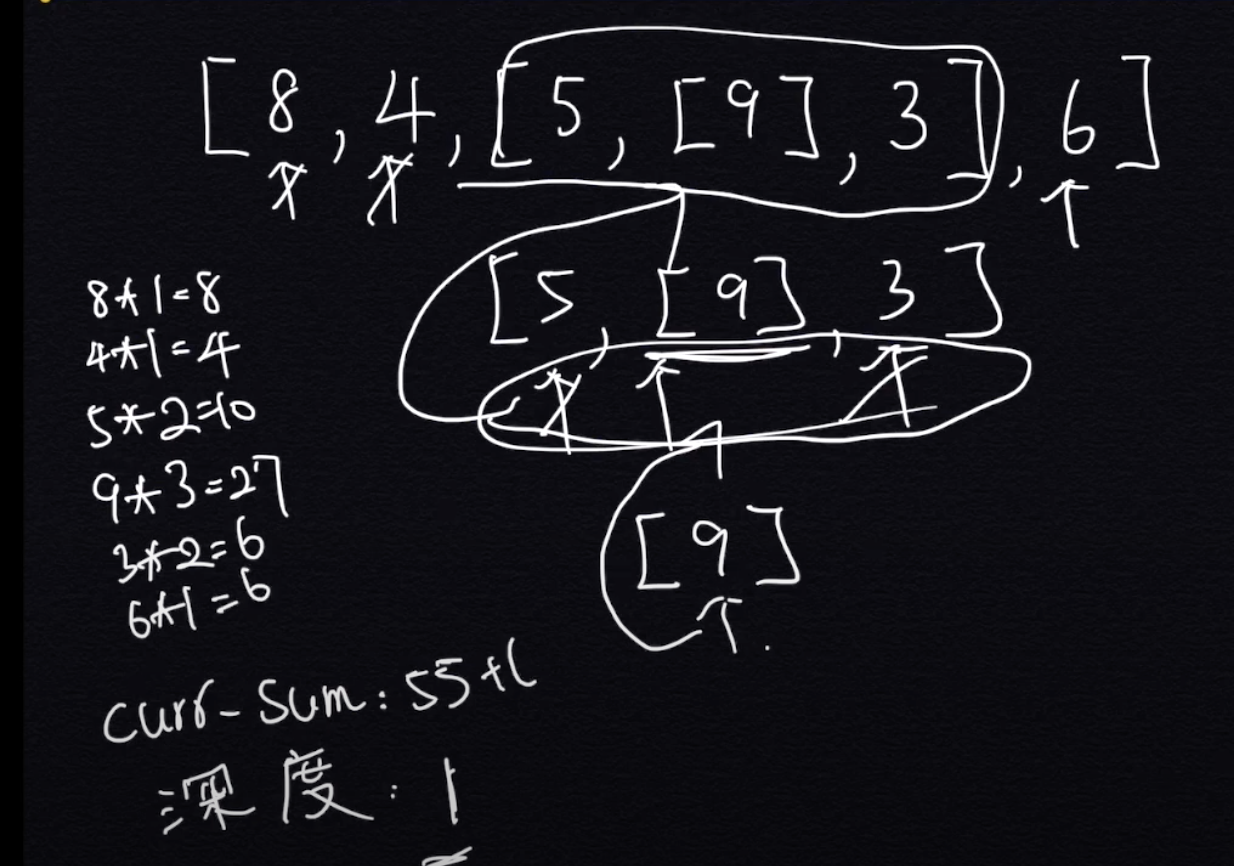 [8, 4, [5, [9], 3], 6]
[5, [9], 3]
8*1=8
4*1=4
5*2=10
9*3=27
3*2=6
6*1=6
[9]
curr-sum: 55+6
深度: 1